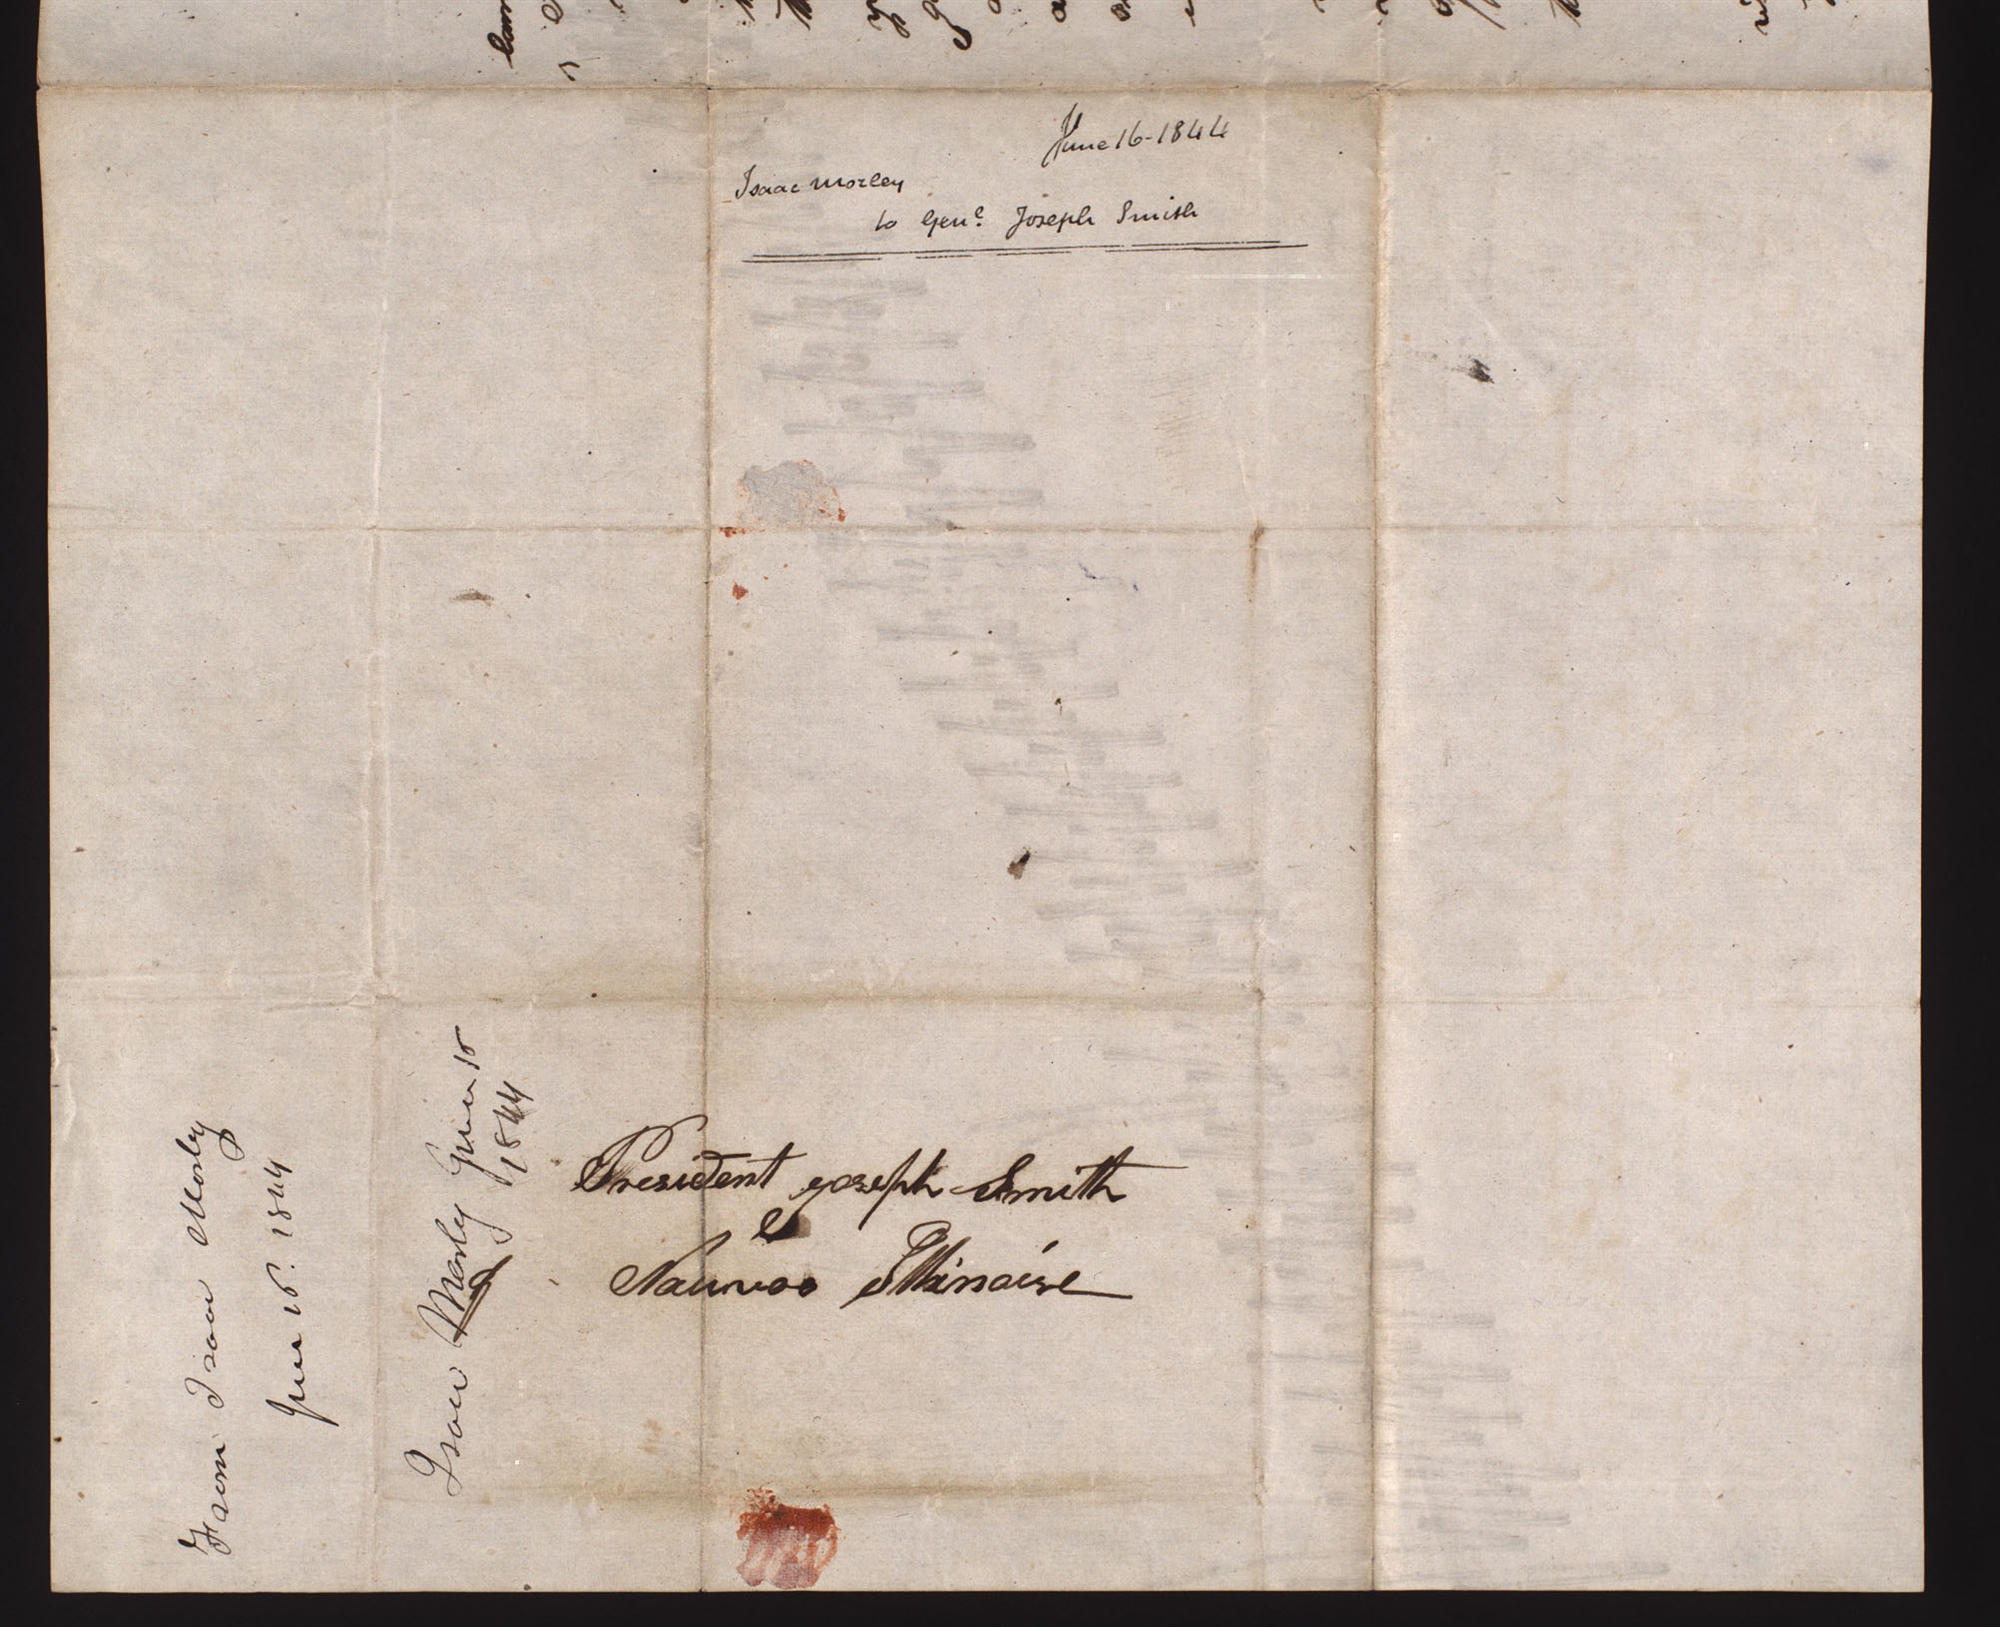 June 16-1844
Isaac Morley
to Genl. Joseph Smith
President Joseph Smith
Nauvoo Illinoise
Isaac Morley June 16
1844
From Isaac Morley
June 16. 1844